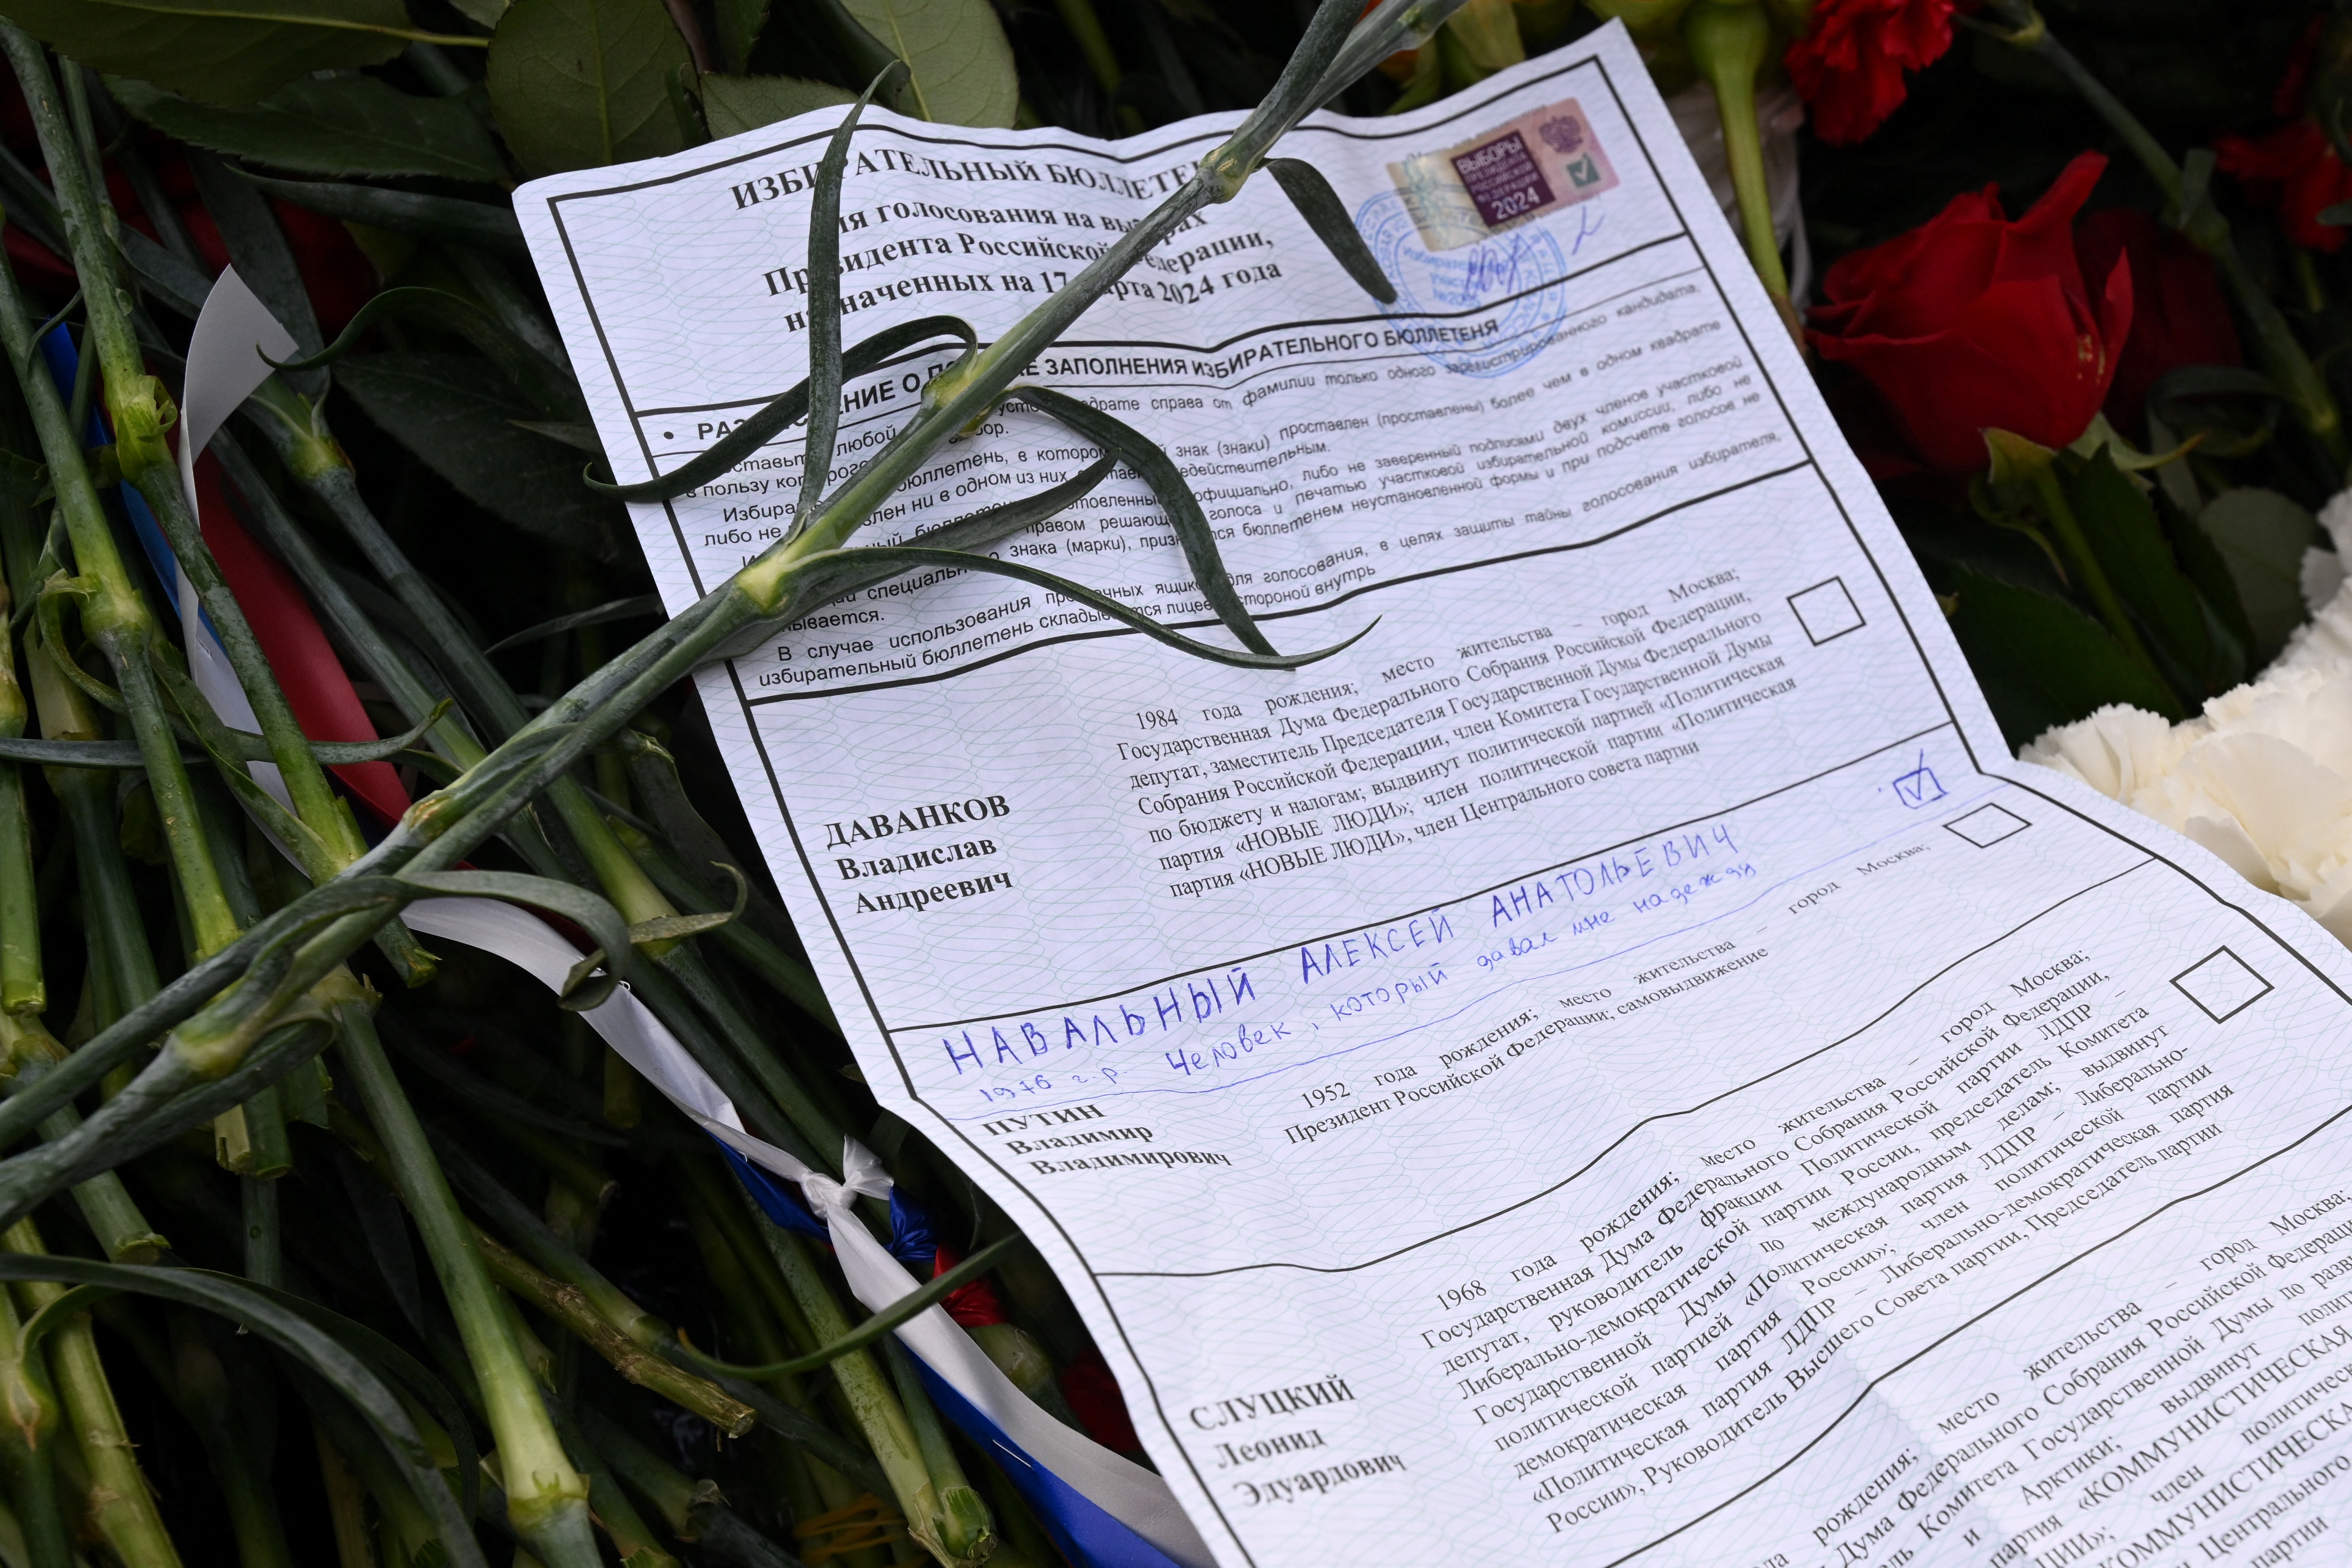 ИЗБИРАТЕЛЬНЫЙ БЮЛЛЕТЕ
ия голосования на вы рах
Президента Российской Федерации,
на наченных на 17 арта 2024 года
ВЫБОРЫ
ПРЕЗИДЕНТА
РОССИЙСКОЙ
ФЕДЕРАЦИИ
2024
• РАЗ ЕНИЕ О П КЕ ЗАПОЛНЕНИЯ ИЗБИРАТЕЛЬНОГО БЮЛЛЕТЕНЯ
оставьте любой усто драте справа от фамилии только одного зарегистрированного кандидата,
в пользу которого бор.
Избира бюллетень, в котором знак (знаки) проставлен (проставлены) более чем в одном квадрате
либо не влен ни в одном из них, едействительным.
ный бюллетень, отовленный официально, либо не заверенный подписями двух членов участковой
правом решающ голоса и печатью участковой избирательной комиссии, либо не
ий специально знака (марки), призн тся бюллетенем неустановленной формы и при подсчете голосов не
ывается.
В случае использования про чных ящик для голосования, в целях защиты тайны голосования избирателя,
избирательный бюллетень складывается лицевой стороной внутрь
ДАВАНКОВ
Владислав
Андреевич
1984 года рождения; место жительства – город Москва;
Государственная Дума Федерального Собрания Российской Федерации,
депутат, заместитель Председателя Государственной Думы Федерального
Собрания Российской Федерации, член Комитета Государственной Думы
по бюджету и налогам; выдвинут политической партией «Политическая
партия «НОВЫЕ ЛЮДИ»; член политической партии «Политическая
партия «НОВЫЕ ЛЮДИ», член Центрального совета партии
НАВАЛЬНЫЙ АЛЕКСЕЙ АНАТОЛЬЕВИЧ
1976 г.р. Человек, который давал мне надежду
ПУТИН
Владимир
Владимирович
1952 года рождения; место жительства – город Москва;
Президент Российской Федерации; самовыдвижение
СЛУЦКИЙ
Леонид
Эдуардович
1968 года рождения; место жительства – город Москва;
Государственная Дума Федерального Собрания Российской Федерации,
депутат, руководитель фракции Политической партии ЛДПР –
Либерально-демократической партии России, председатель Комитета
Государственной Думы по международным делам; выдвинут
политической партией «Политическая партия ЛДПР – Либерально-
демократическая партия России»; член политической партии
«Политическая партия ЛДПР – Либерально-демократическая партия
России», Руководитель Высшего Совета партии, Председатель партии
рождения; место жительства – город Москва;
Дума Федерального Собрания Российской Федерации
ль Комитета Государственной Думы по разв
и Арктики; выдвинут
партия «КОММУНИСТИЧЕСКАЯ
член политическ
КОММУНИСТИЧЕСКА
Центрального